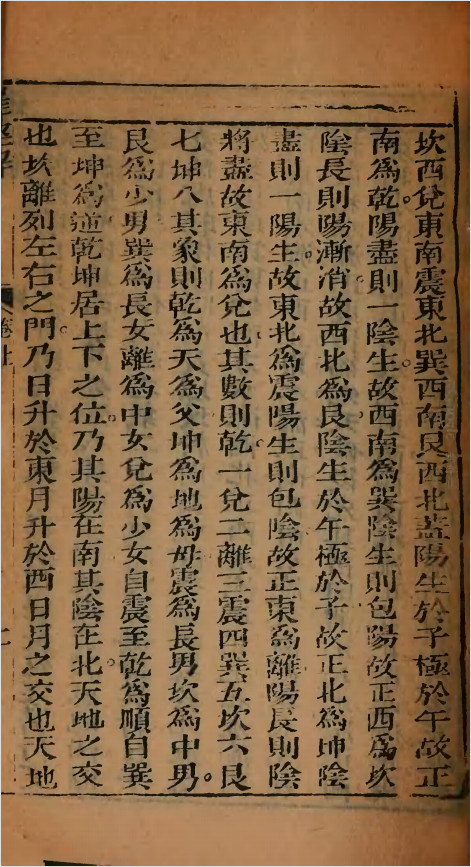 坎西兌東南震東北巽西南艮西北蓋陽生於子極於午故正
南爲乾陽盡則一陰生故西南爲巽陰生則包陽故正西爲坎
陰長則陽漸消故西北爲艮陰生於午極於子故正北爲坤陰
盡則一陽生故東北爲震陽生則包陰故正東爲離陽長則陰
將盡故東南爲兌也其數則乾一兌二離三震四巽五坎六艮
七坤八其象則乾爲天爲父坤爲地爲母震爲長男坎爲中男
艮爲少男巽爲長女離爲中女兌爲少女自震至乾爲順自巽
至坤爲逆乾坤居上下之位乃其陽在南其陰在北天地之交
也坎離列左右之門乃日升於東月升於西日月之交也天地
卷上